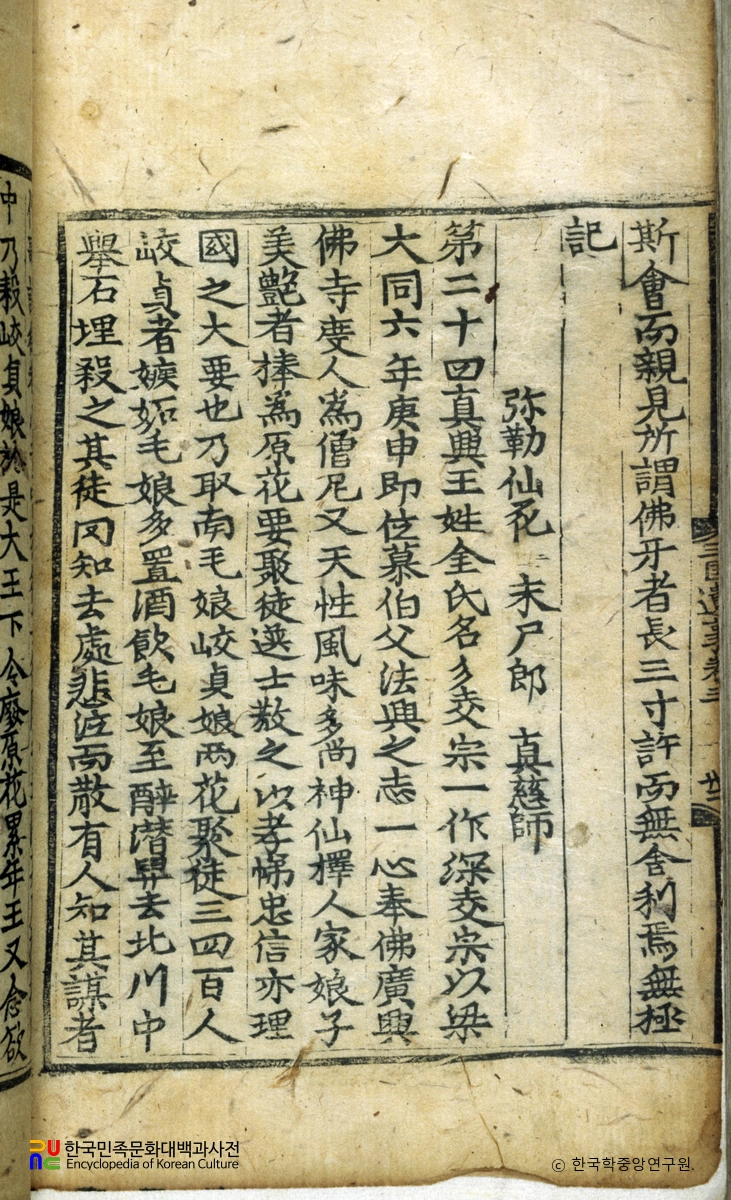 三國遺事卷三 廿二
斯會而親見所謂佛牙者長三寸許而無舍利焉無極
記
弥勒仙花 末尸郎 真慈師
第二十四真興王姓金氏名彡夌宗一作深夌宗以梁
大同六年庚申即位慕伯父法興之志一心奉佛廣興
佛寺度人為僧尼又天性風味多尚神仙擇人家娘子
美艷者捧為原花要聚徒選士教之以孝悌忠信亦理
國之大要也乃取南毛娘峧貞娘兩花聚徒三四百人
峧貞者嫉妬毛娘多置酒飲毛娘至醉潜舁去北川中
舉石埋殺之其徒罔知去處悲泣而散有人知其謀者
中乃殺峧貞娘於是大王下令廢原花累年王又念欲
한국민족문화대백과사전
Encyclopedia of Korean Culture
© 한국학중앙연구원